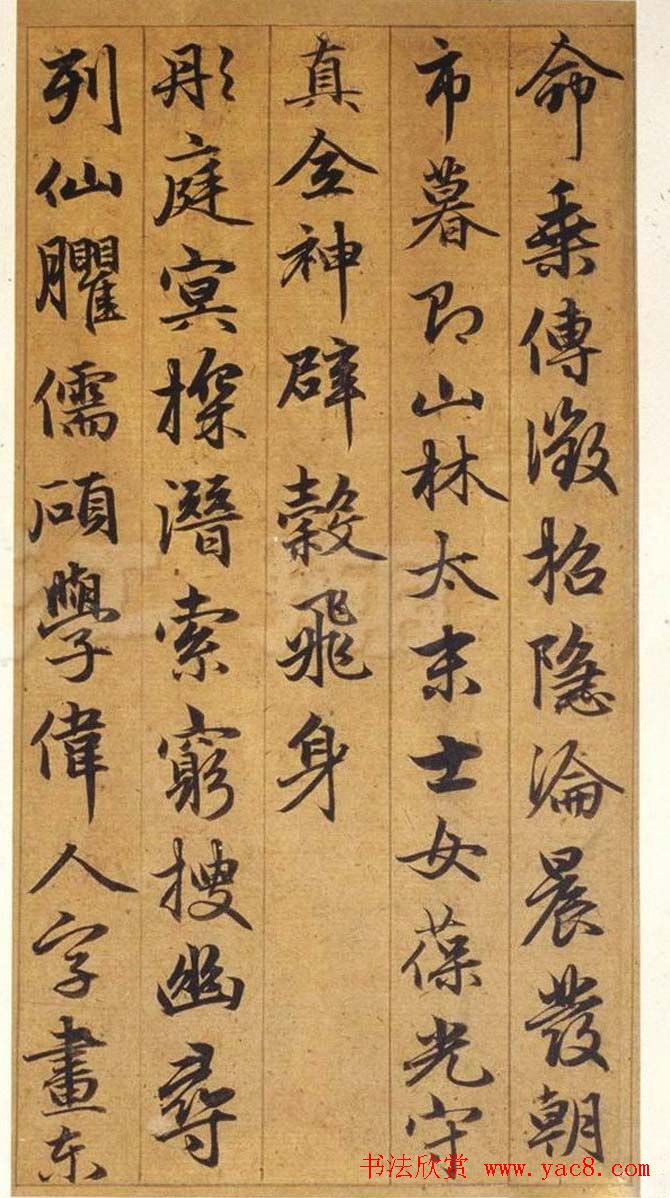 命乘傳徵招隱淪晨發朝
市暮即山林太末士女葆光守
真全神辟穀飛身
彤庭冥探潛索窮搜幽尋
列仙臞儒碩學偉人字畫东
书法欣赏 www.yac8.com